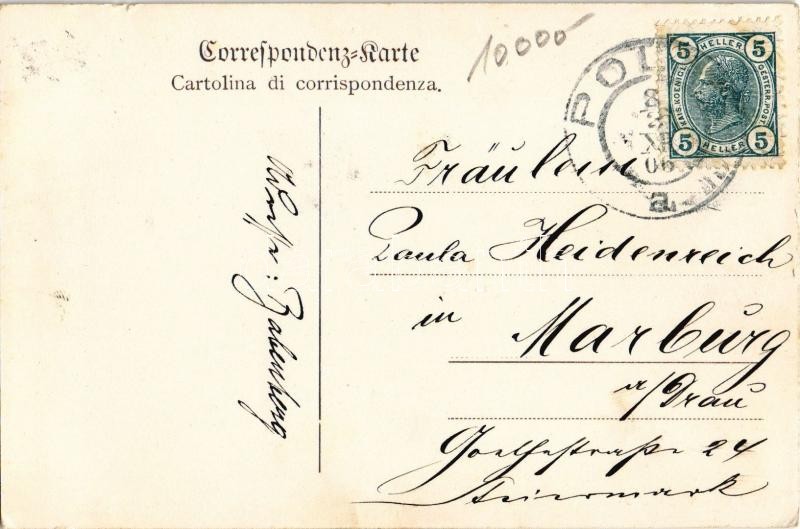 Correspondenz-Karte
Cartolina di corrispondenza.
10000
5 HELLER 5
KAIS. KOENIGL. OESTERR. POST.
5 HELLER 5
POL
06
a
Fräulein
Paula Heidenreich
in
Marburg
a/Drau
Goethestraße 24
Steiermark
Babenberg